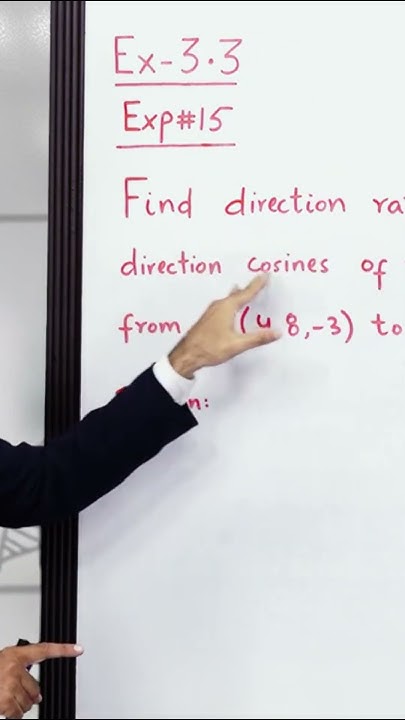 Ex-3.3
Exp#15
Find direction ra
direction cosines of
from (4 8,-3) to
n: